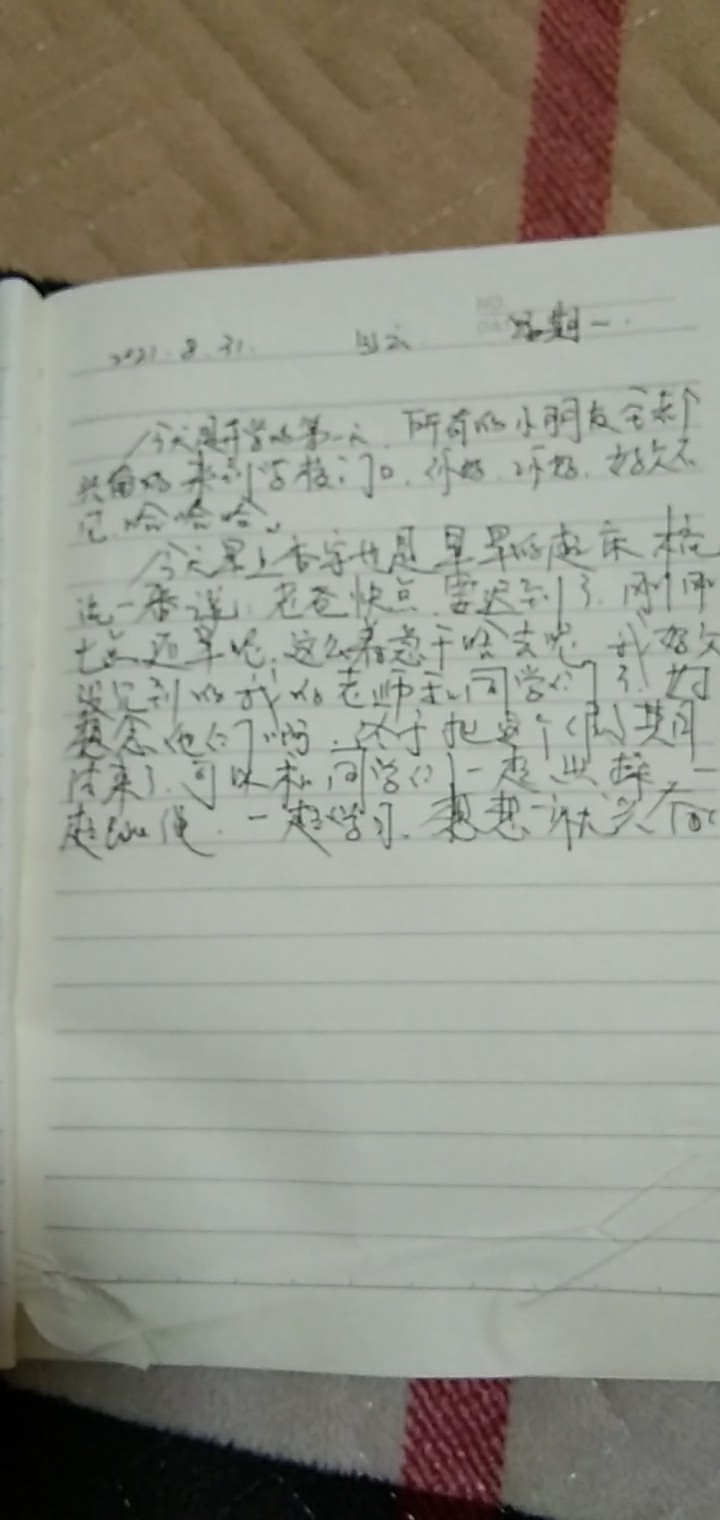 2021.8.31. 多云 星期一.
今天是开学的第一天,所有的小朋友全都
兴奋的来到学校门口,你好,你好,好久不
见,哈哈哈。
今天早上杏宇也是早早的起床梳
洗一番说,老爸快点,要迟到了,刚刚
七点还早呢,这么着急干啥去呢,我好久
没见到的我的老师和同学们了,好
想念他们啊,终于把这个假期
结束了,可以和同学们一起出操,一
起玩儿,一起学习,想想就兴奋